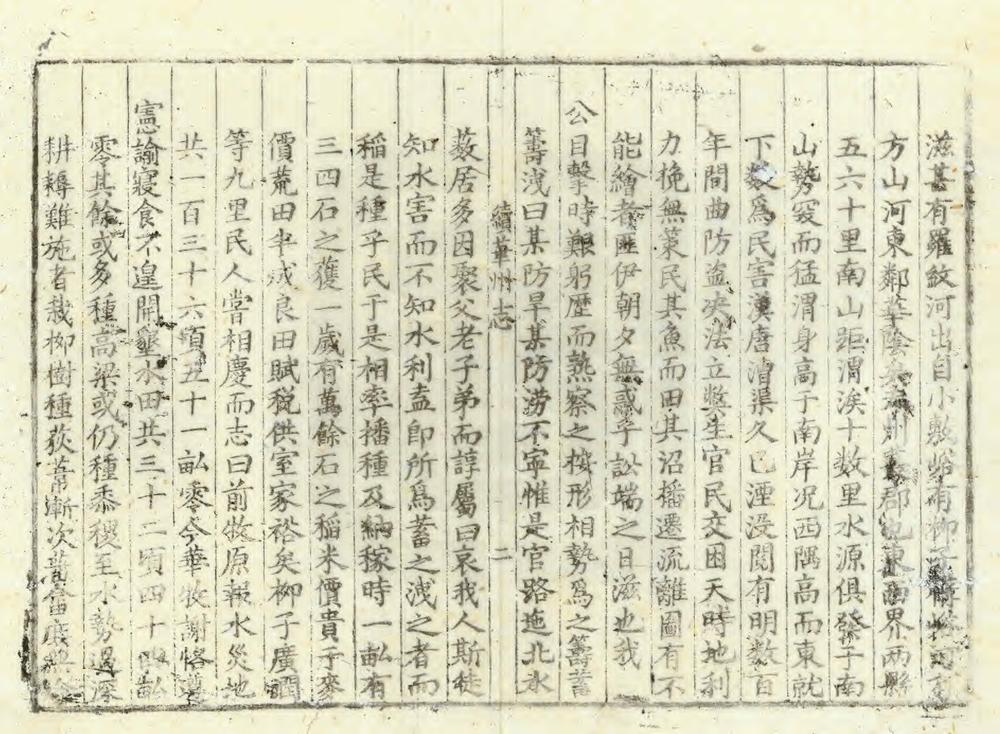 滋甚有羅紋河出自小敷峪有柳子
方山河東鄰華陰郡也東西界兩縣
五六十里南山距渭涘十数里水源俱發于南
山勢窄而猛渭身高于南岸况西隅高而東就
下数爲民害漢唐漕渠久已湮没閱有明数百
年間曲防盗决法立獘生官民交困天時地利
力挽無策民其魚而田其沼播遷流離圖有不
能繪者匪伊朝夕無惑乎訟端之日滋也我
公目擊時艱躬歴而熟察之機形相勢爲之籌蓄
籌洩曰某防旱某防澇不寧惟是官路迤北水
續華州志 二
薮居多因聚父老子弟而諄屬曰哀我人斯徒
知水害而不知水利盍即所爲蓄之洩之者而
稲是種乎民于是相率播種及納稼時一畝有
三四石之獲一歳有萬餘石之稲米價貴于麥
價荒田半成良田賦稅供室家裕矣柳子廣潤
等九里民人嘗相慶而志曰前牧原報水災地
共一百三十六頃五十一畝零今華牧謝恪遵
憲諭寢食不遑開墾水田共三十二頃四十四畝
零其餘或多種高粱或仍種黍稷至水勢過深
耕耨難施者栽柳樹種荻葦漸次